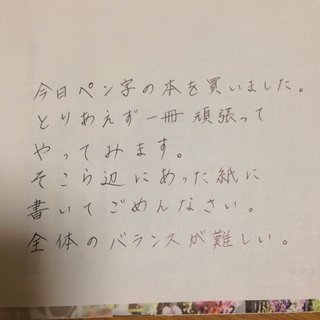 今日ペン字の本を買いました。
とりあえず一冊頑張って
やってみます。
そこら辺にあった紙に
書いてごめんなさい。
全体のバランスが難しい。